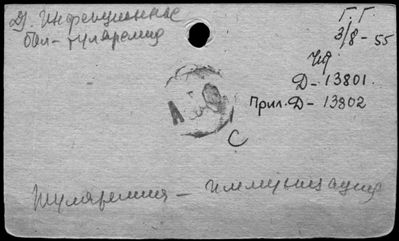 Инфекционные
бол- туляремия
Г. Г.
3/8 - 55
Д - 13801.
Прил. Д - 13802
С
Туляремия - иммунизация